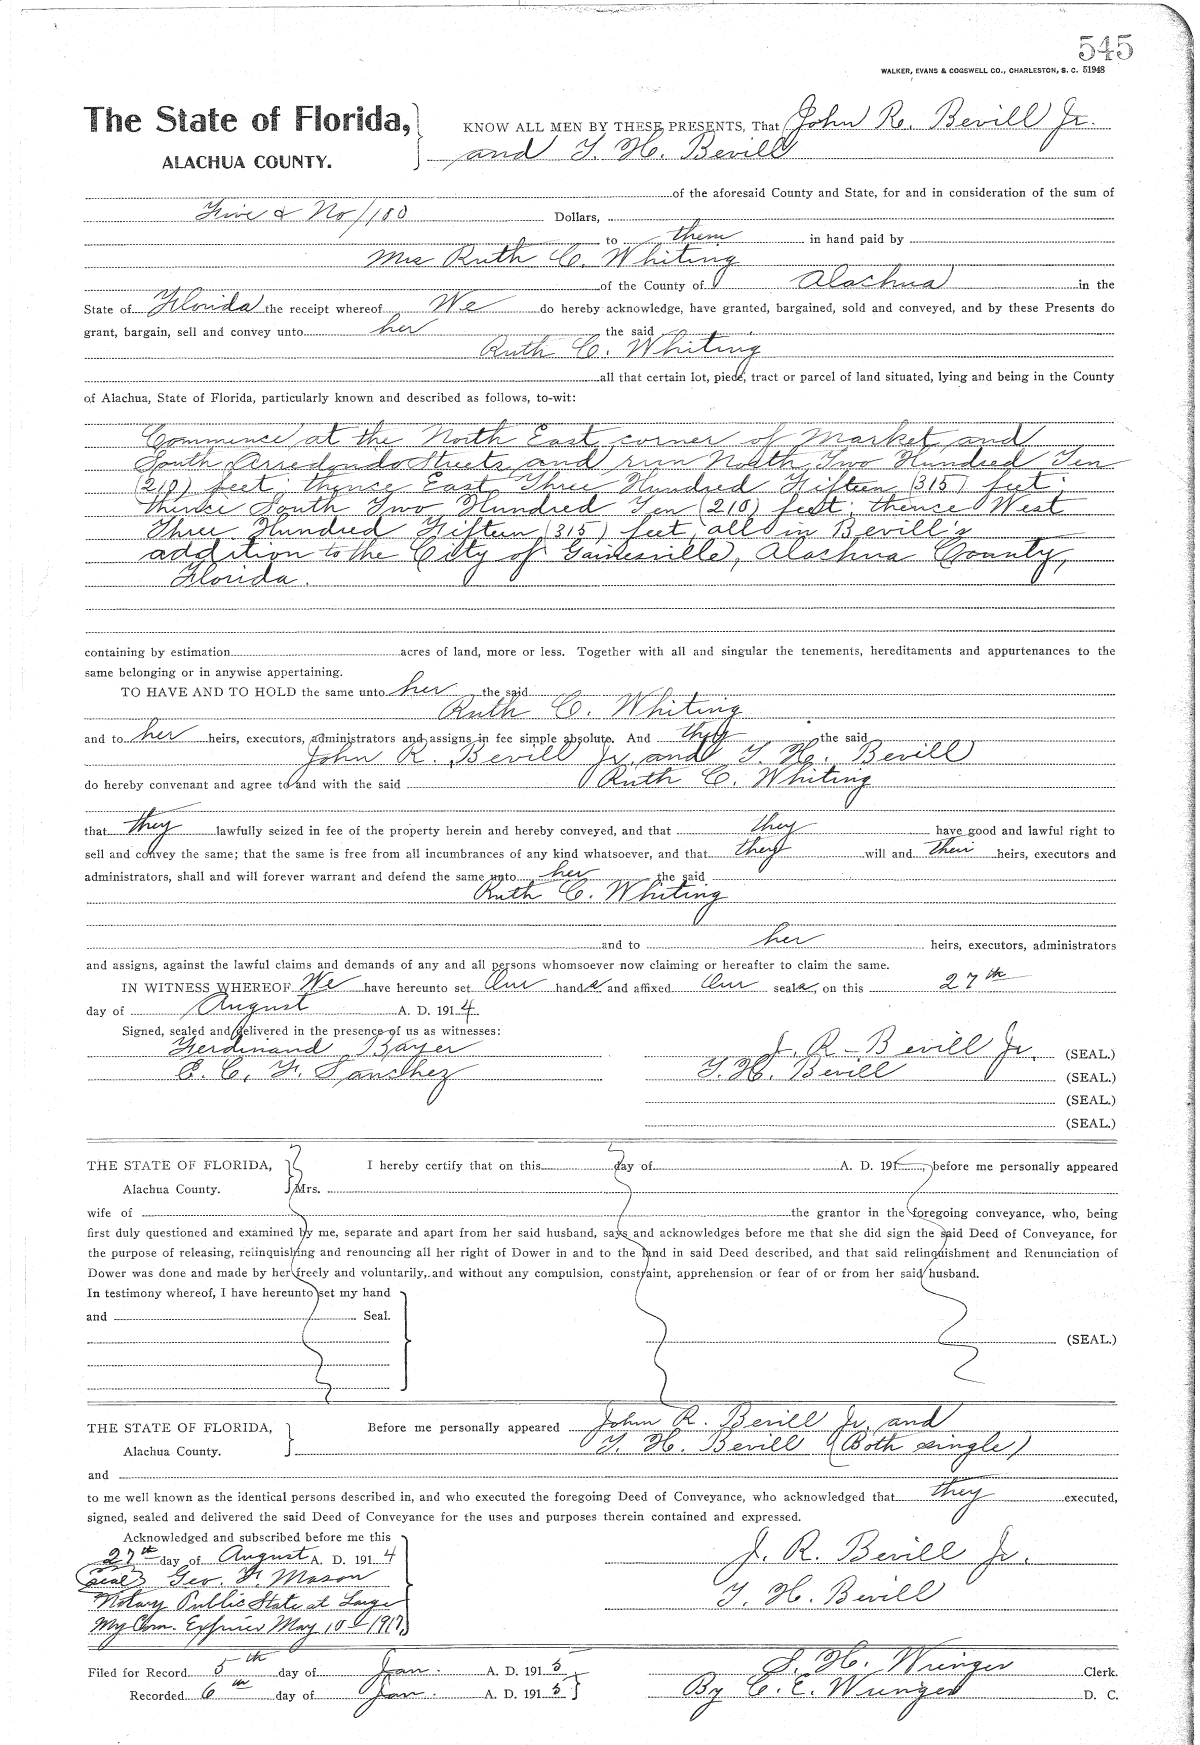 545
WALKER, EVANS & COGSWELL CO., CHARLESTON, S. C. 51948
The State of Florida,
ALACHUA COUNTY.
KNOW ALL MEN BY THESE PRESENTS, That John R. Bevill Jr.
and T. H. Bevill
of the aforesaid County and State, for and in consideration of the sum of
Five & No/100 Dollars,
to them in hand paid by
Mrs Ruth C. Whiting
of the County of Alachua in the
State of Florida the receipt whereof We do hereby acknowledge, have granted, bargained, sold and conveyed, and by these Presents do
grant, bargain, sell and convey unto her the said
Ruth C. Whiting
all that certain lot, piece, tract or parcel of land situated, lying and being in the County
of Alachua, State of Florida, particularly known and described as follows, to-wit:
Commence at the North East corner of Market and
South Arredondo Streets and run North Two Hundred Ten
(210) feet; thence East Three Hundred Fifteen (315) feet;
thence South Two Hundred Ten (210) feet; thence West
Three Hundred Fifteen (315) feet, all in Bevill's
addition to the City of Gainesville, Alachua County,
Florida.
containing by estimation acres of land, more or less. Together with all and singular the tenements, hereditaments and appurtenances to the
same belonging or in anywise appertaining.
TO HAVE AND TO HOLD the same unto her the said
Ruth C. Whiting
and to her heirs, executors, administrators and assigns in fee simple absolute. And they the said
John R. Bevill Jr. and T. H. Bevill
do hereby convenant and agree to and with the said Ruth C. Whiting
that they lawfully seized in fee of the property herein and hereby conveyed, and that they have good and lawful right to
sell and convey the same; that the same is free from all incumbrances of any kind whatsoever, and that they will and their heirs, executors and
administrators, shall and will forever warrant and defend the same unto her the said
Ruth C. Whiting
and to her heirs, executors, administrators
and assigns, against the lawful claims and demands of any and all persons whomsoever now claiming or hereafter to claim the same.
IN WITNESS WHEREOF We have hereunto set Our hands and affixed Our seals, on this 27th
day of August A. D. 1914.
Signed, sealed and delivered in the presence of us as witnesses:
Ferdinand Bayer
J. R. Bevill Jr. (SEAL.)
E. C. F. Sanchez
T. H. Bevill (SEAL.)
(SEAL.)
(SEAL.)
THE STATE OF FLORIDA,
Alachua County.
I hereby certify that on this day of A. D. 191 , before me personally appeared
Mrs.
wife of the grantor in the foregoing conveyance, who, being
first duly questioned and examined by me, separate and apart from her said husband, says and acknowledges before me that she did sign the said Deed of Conveyance, for
the purpose of releasing, relinquishing and renouncing all her right of Dower in and to the land in said Deed described, and that said relinquishment and Renunciation of
Dower was done and made by her freely and voluntarily, and without any compulsion, constraint, apprehension or fear of or from her said husband.
In testimony whereof, I have hereunto set my hand
and Seal.
(SEAL.)
THE STATE OF FLORIDA,
Alachua County.
Before me personally appeared John R. Bevill Jr. and
T. H. Bevill (Both single)
and
to me well known as the identical persons described in, and who executed the foregoing Deed of Conveyance, who acknowledged that they executed,
signed, sealed and delivered the said Deed of Conveyance for the uses and purposes therein contained and expressed.
Acknowledged and subscribed before me this
27th day of August A. D. 1914
(seal) Geo. F. Mason
Notary Public State at Large
My Com. Expires May 10th 1917
J. R. Bevill Jr.
T. H. Bevill
Filed for Record 5th day of Jan. A. D. 1915
Recorded 6th day of Jan. A. D. 1915
S. H. Wienges Clerk.
By C. E. Wienges D. C.